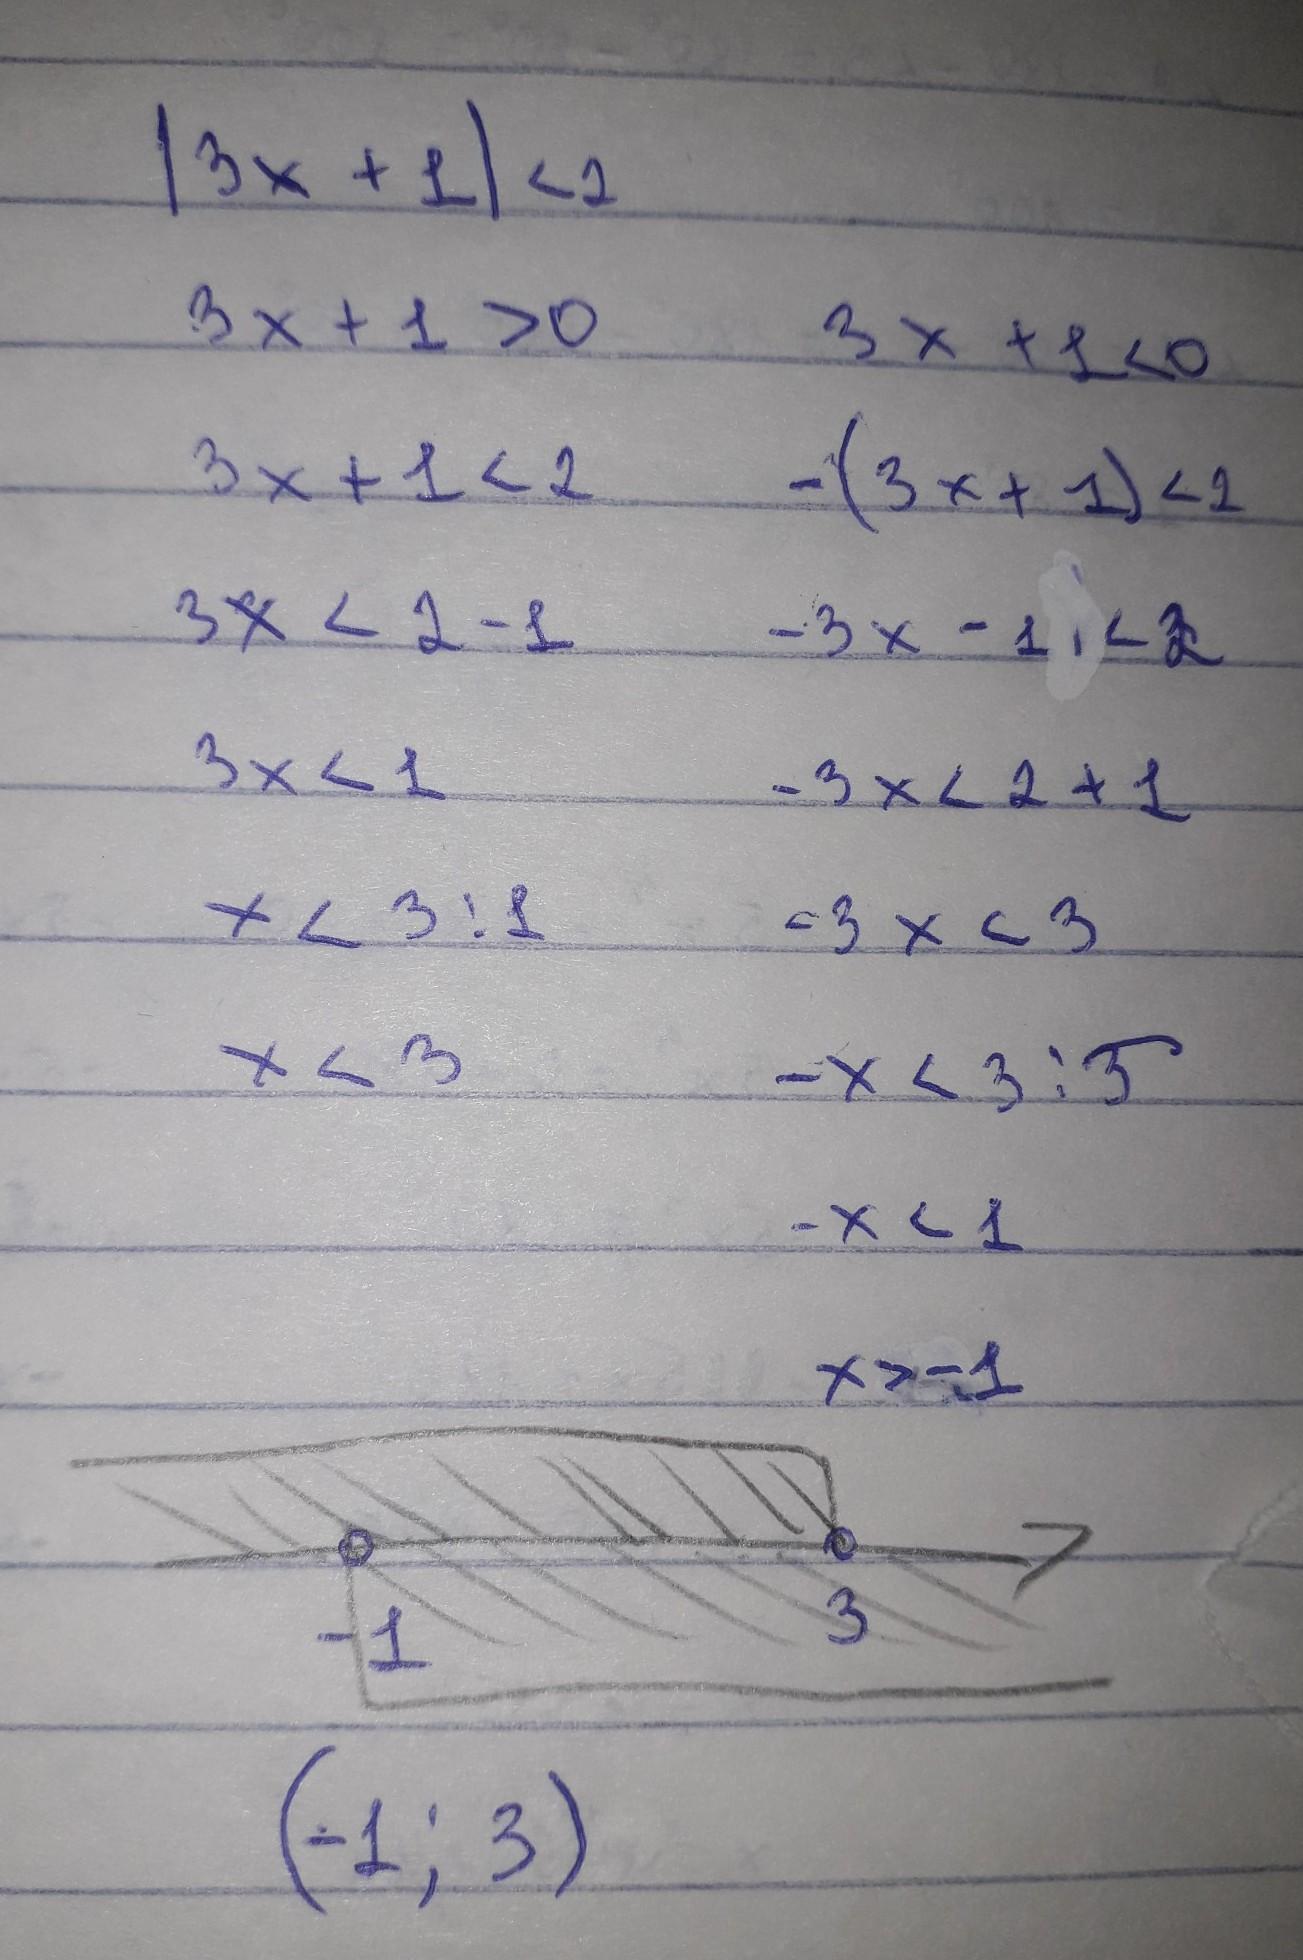 |3x + 1| < 2
3x + 1 > 0
3x + 1 < 0
3x + 1 < 2
-(3x + 1) < 2
3x < 2 - 1
-3x - 1 < 2
3x < 1
-3x < 2 + 1
x < 3 : 1
-3x < 3
x < 3
-x < 3 : 3
-x < 1
x > -1
-1
3
(-1; 3)